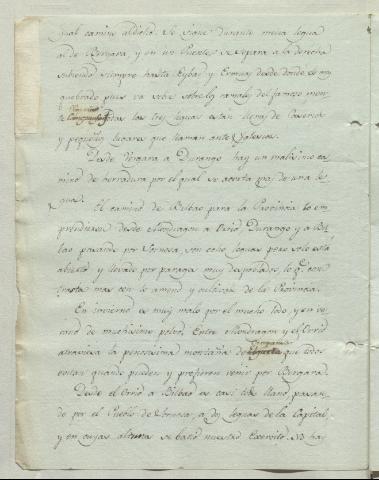 qual camino aldicho se sigue durante media legua
al de Bergara, y en un Puente se separa ala derecha
subiendo siempre hasta Eybar y Ermua, desde donde es mas
quebrado, pues va sobre los ramales del famoso mon-
te todas las tres leguas estan llenas de Caserias
y pequeños lugares que llaman ante Yglesias.
Desde Vergara a Durango hay un malisimo ca
mino de herradura por el qual se acorta mas de una le
gua.
El camino de Bilbao para la Provincia lo em
prendieron desde Mondragon a Orrio Durango y a Bil
bao pasando por Sornosa, son ocho leguas pero solo esta
abierto y llevado por parages muy despoblados, lo q.e con
trasta mas con lo ameno y cultivado de la Provincia.
En invierno es muy malo por el mucho lodo, y en ve
rano de muchisimo polvo. Entre Mondragon y el Orrio
atraviesa la penosisima montaña de que todos
evitan quando pueden y prefieren venir por Bergara.
Desde el Orrio a Bilbao es casi todo llano pasan-
do por el Pueblo de a dos leguas de la Capital,
y en cuyas alturas se batió nuestro Exercito. No hay